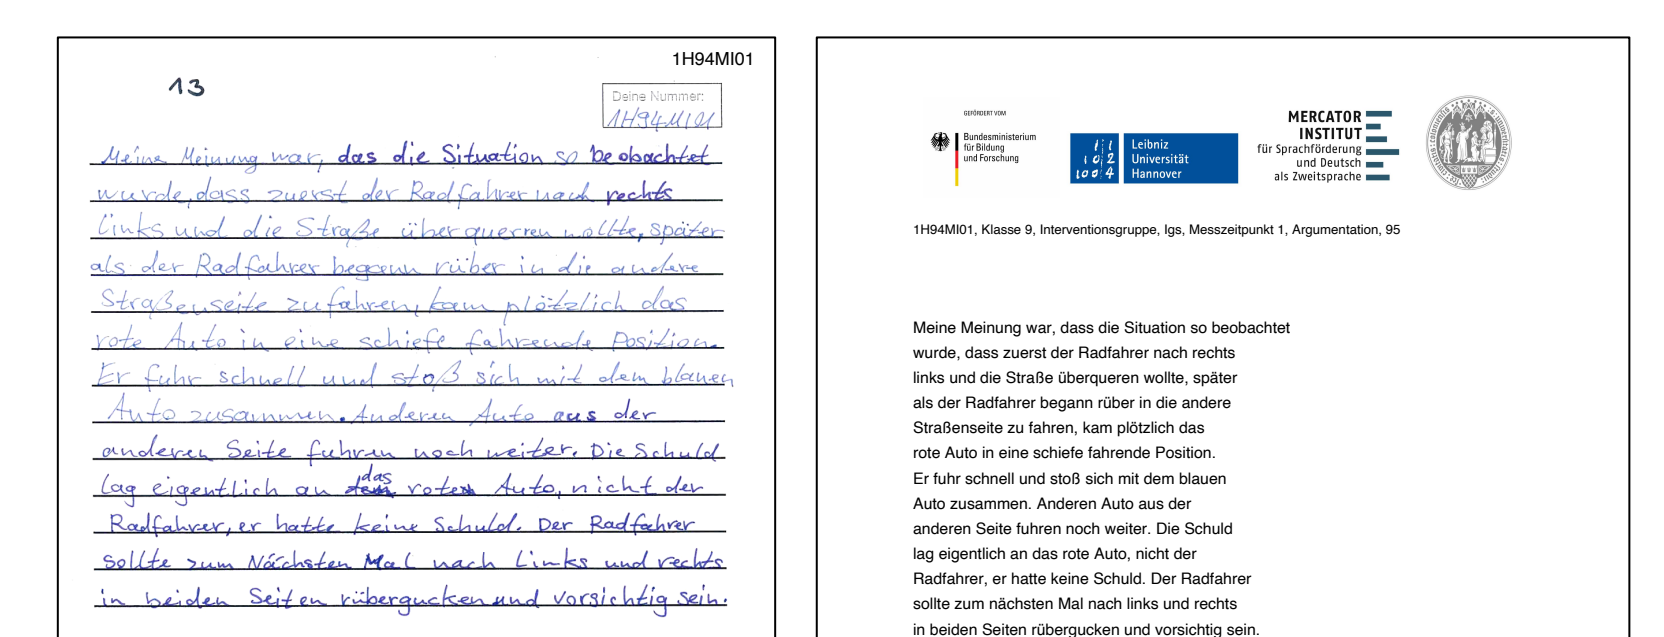 1H94MI01
13
Deine Nummer:
1H94MI01
Meine Meinung war, das die Situation so beobachtet
wurde, dass zuerst der Radfahrer nach rechts
Links und die Straße überquerren wollte, später
als der Radfahrer begann rüber in die andere
Straßenseite zufahren, kam plötzlich das
rote Auto in eine schiefe fahrende Position.
Er fuhr schnell und stoß sich mit dem blauen
Auto zusammen. Anderen Auto aus der
anderen Seite fuhren noch weiter. Die Schuld
lag eigentlich an das rote Auto, nicht der
Radfahrer, er hatte keine Schuld. Der Radfahrer
sollte zum Nächsten Mal nach Links und rechts
in beiden Seiten rübergucken und vorsichtig sein.
GEFÖRDERT VOM
Bundesministerium
für Bildung
und Forschung
Leibniz
Universität
Hannover
MERCATOR
INSTITUT
für Sprachförderung
und Deutsch
als Zweitsprache
1H94MI01, Klasse 9, Interventionsgruppe, Igs, Messzeitpunkt 1, Argumentation, 95
Meine Meinung war, dass die Situation so beobachtet
wurde, dass zuerst der Radfahrer nach rechts
links und die Straße überqueren wollte, später
als der Radfahrer begann rüber in die andere
Straßenseite zu fahren, kam plötzlich das
rote Auto in eine schiefe fahrende Position.
Er fuhr schnell und stoß sich mit dem blauen
Auto zusammen. Anderen Auto aus der
anderen Seite fuhren noch weiter. Die Schuld
lag eigentlich an das rote Auto, nicht der
Radfahrer, er hatte keine Schuld. Der Radfahrer
sollte zum nächsten Mal nach links und rechts
in beiden Seiten rübergucken und vorsichtig sein.